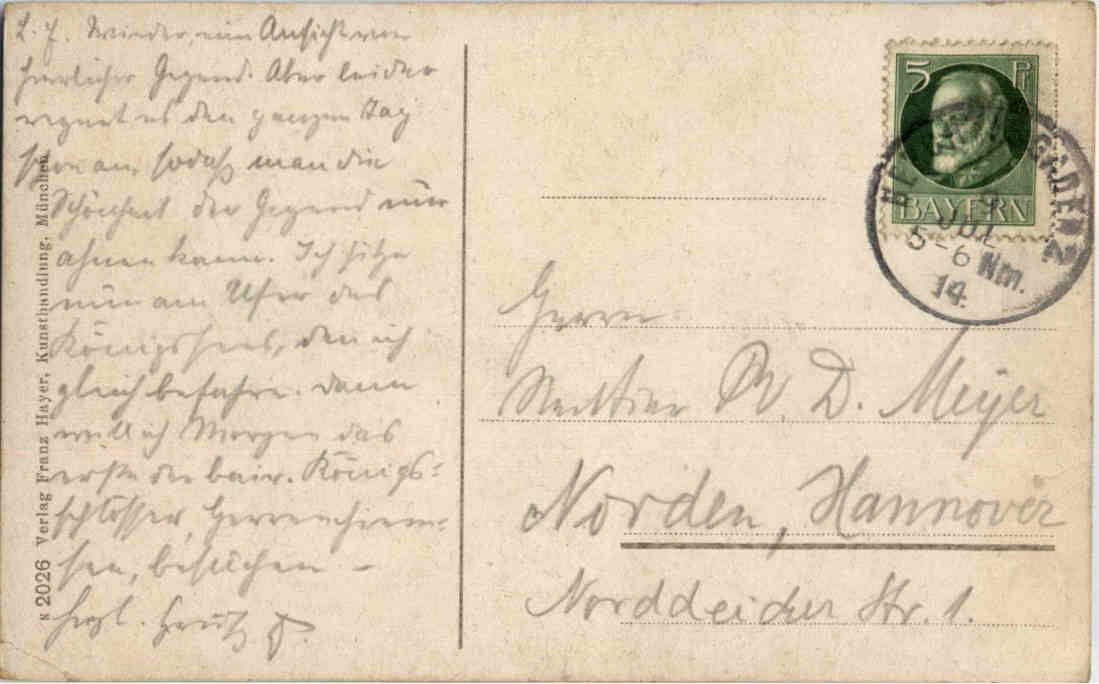 L. F. Wieder, ein Ansicht von
herrlicher Gegend. Aber leider
regnet es den ganzen Tag
schon an, sodaß man die
Schönheit der Gegend nur
ahnen kann. Ich sitze
nun am Ufer des
Königssees, den ich
gleich befahre. Dann
will ich Morgen das
erste der bair. Königs=
schlösser, Herrenchiem=
see, besuchen –
Hrzl. Gruß
N 2026 Verlag Franz Hayer, Kunsthandlung, München
5 Pf
BAYERN
9
JUL
5-6 Nm.
14
Herrn
Rentier D. Meyer
Norden, Hannover
Norddeicher Str. 1.